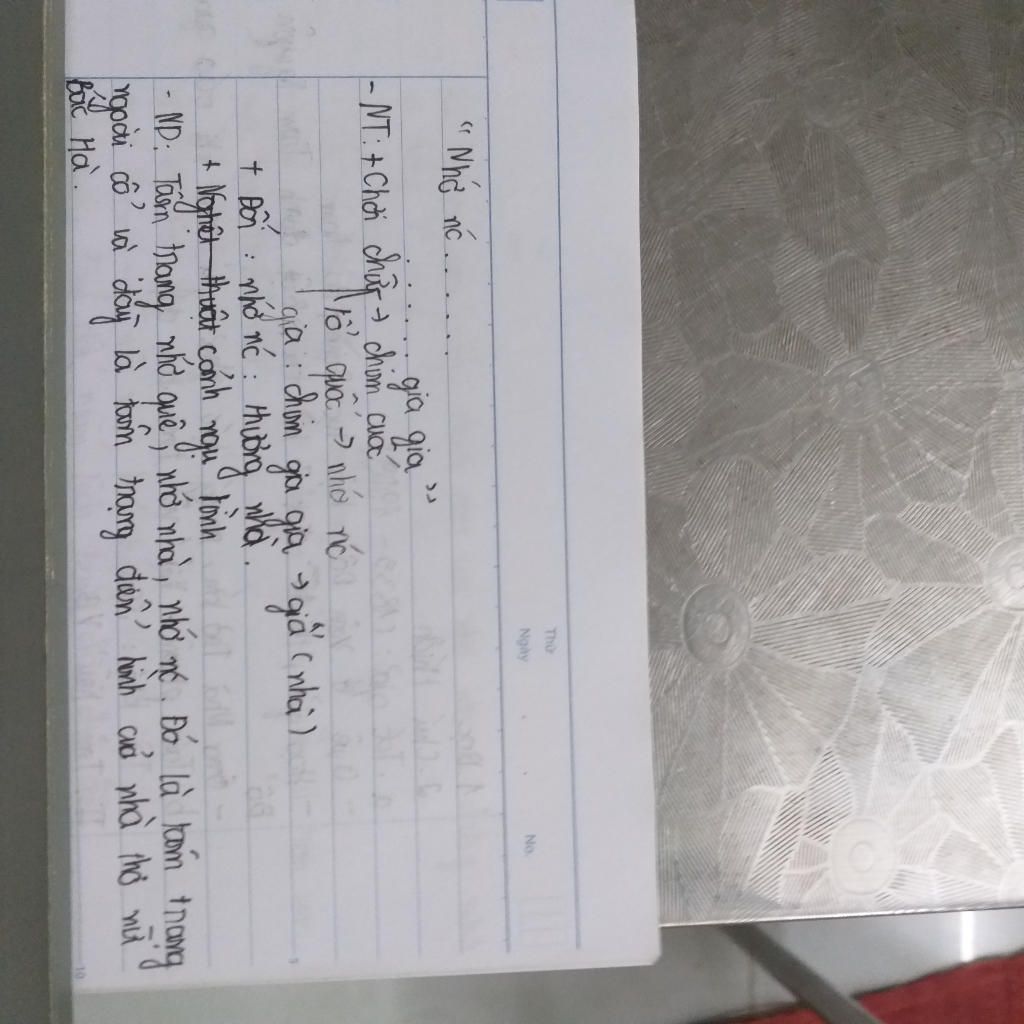 Thứ
Ngày . . No.
“ Nhớ nc . . . . .
. . . . . gia gia ”
- NT: + Chơi chữ → chim cuốc
tổ quốc → nhớ nc
gia : chim gia gia → gia (nhà)
+ Đối : nhớ nc : thương nhà.
+ Nghệ thuật cảnh ngụ tình
- ND: Tâm trạng nhớ quê, nhớ nhà, nhớ nc. Đó là tâm trạng
người cổ và đây là tâm trạng điển hình của nhà thơ nữ
Bắc Hà.
5
10